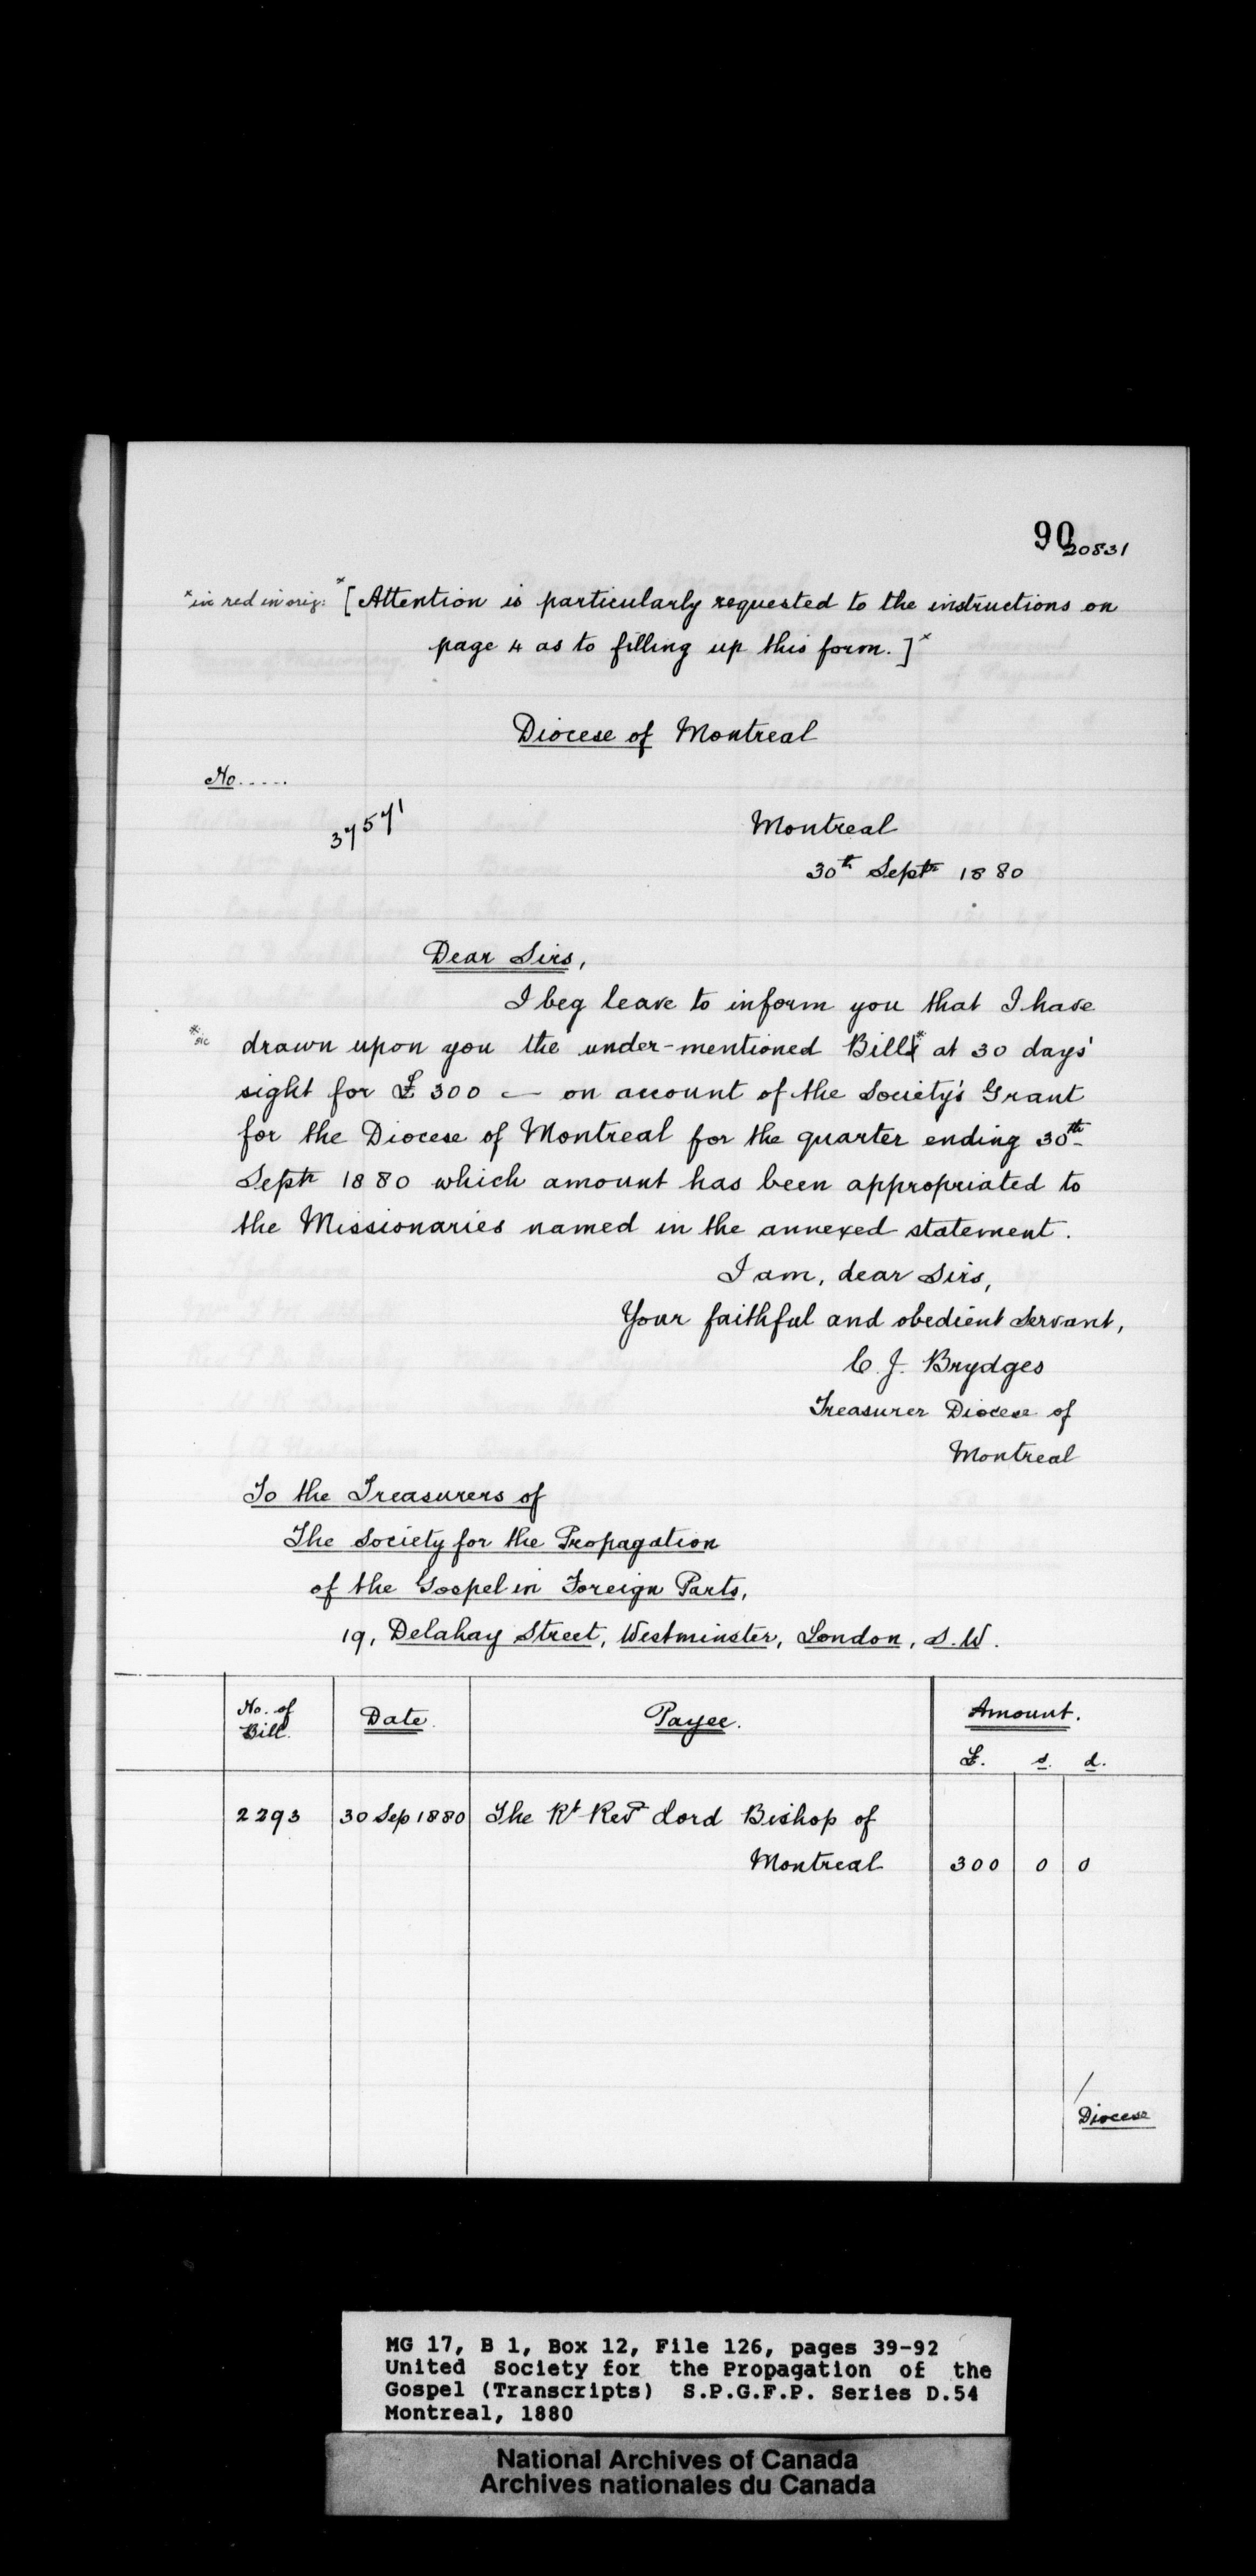 90
20831
*in red in orig: *[Attention is particularly requested to the instructions on
page 4 as to filling up this form.]*
Diocese of Montreal
No.....
37571
Montreal
30th Septr 1880
Dear Sirs,
I beg leave to inform you that I have
*sic drawn upon you the under-mentioned Bills* at 30 days'
sight for £300 — on account of the Society's Grant
for the Diocese of Montreal for the quarter ending 30th
Septr 1880 which amount has been appropriated to
the Missionaries named in the annexed statement.
I am, dear Sirs,
Your faithful and obedient Servant,
C. J. Brydges
Treasurer Diocese of
Montreal
To the Treasurers of
The Society for the Propagation
of the Gospel in Foreign Parts,
19, Delahay Street, Westminster, London, S.W.
No. of Bill. Date. Payee. Amount.
£. s. d.
2293 30 Sep 1880 The Rt Revd Lord Bishop of
Montreal 300 0 0
/
Diocese
MG 17, B 1, Box 12, File 126, pages 39-92
United Society for the Propagation of the
Gospel (Transcripts) S.P.G.F.P. Series D.54
Montreal, 1880
National Archives of Canada
Archives nationales du Canada